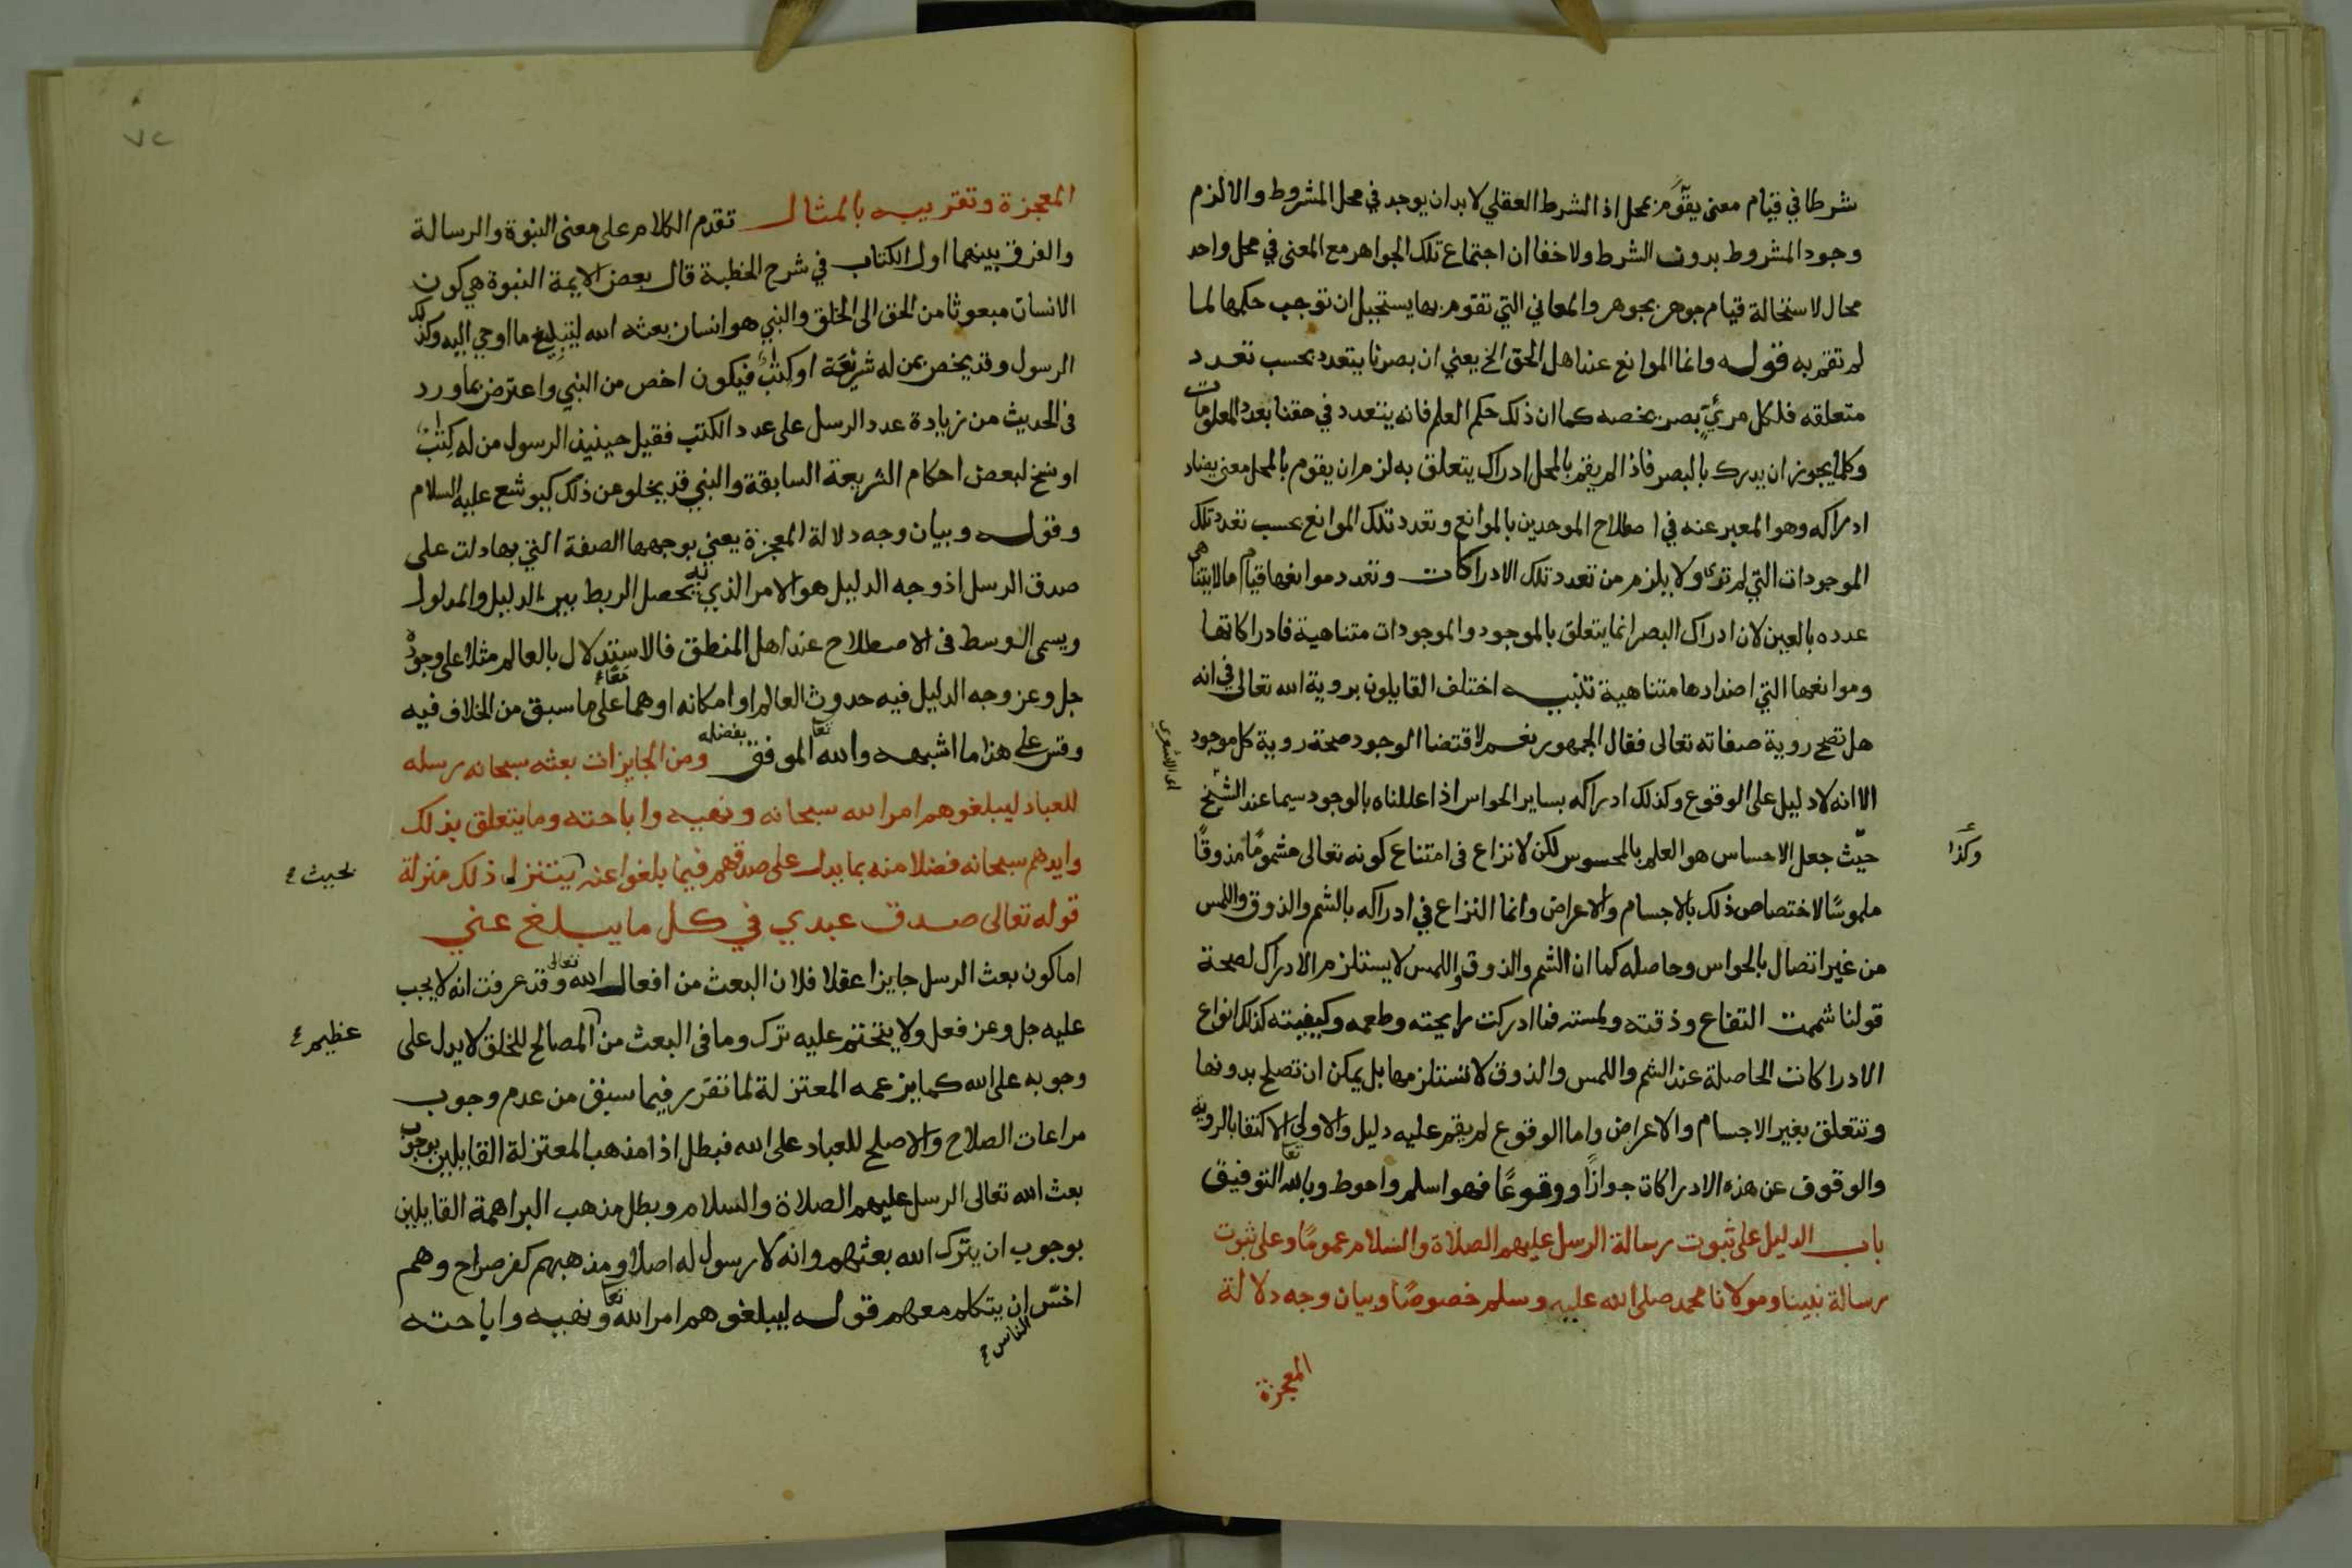 شرطا في قيام معنى يقوم بمحل اذ الشرط العقلي لا بد ان يوجد في محل المشروط والا لزم
وجود المشروط بدون الشرط ولا خفا ان اجتماع تلك الجواهر مع المعنى في محل واحد
محال لاستحالة قيام جوهر بجوهر والمعاني التي تقوم بها يستحيل ان توجب حكمها لما
لم تقم به قوله وانما الموانع عند اهل الحق الخ يعني ان بصرنا يتعدد بحسب تعدد
متعلقه فلكل مرئيٍّ بصر يخصه كما ان ذلك حكم العلم فانه يتعدد في حقنا بعدد المعلومات
وكلما يجوز ان يدرك بالبصر فاذا لم يقم بالمحل ادراك يتعلق به لزم ان يقوم بالمحل معنى يضاد
ادراكه وهو المعبر عنه في اصطلاح الموحدين بالموانع وتعدد تلك الموانع بحسب تعدد تلك
الموجودات التي لم ترى ولا يلزم من تعدد تلك الادراكات وتعدد موانعها قيام ما لا يتناهى
عدده بالعين لان ادراك البصر انما يتعلق بالموجود والموجودات متناهية فادراكاتها
وموانعها التي اضدادها متناهية تنبيه اختلف القايلون بروية الله تعالى في انه
هل تصح روية صفاته تعالى فقال الجمهور نعم لاقتضا الوجود صحة روية كل موجود
الا انه لا دليل على الوقوع وكذلك ادراكه بساير الحواس اذا عللناه بالوجود سيما عند الشيخ
اى الاشعري
حيث جعل الاحساس هو العلم بالمحسوس لكن لا نزاع في امتناع كونه تعالى مشمومًا مذوقًا
وكذا
ملموسًا لاختصاص ذلك بالاجسام والاعراض وانما النزاع في ادراكه بالشم والذوق واللمس
من غير اتصال بالحواس وحاصله كما ان الشم والذوق واللمس لا يستلزم الادراك لصحة
قولنا شممت التفاح وذقته ولمسته فما ادركت رايحته وطعمه وكيفيته كذلك انواع
الادراكات الحاصلة عند الشم واللمس والذوق لا تستلزمها بل يمكن ان تصلح بدونها
وتتعلق بغير الاجسام والاعراض واما الوقوع لم يقم عليه دليل والاولى الاكتفا بالروية
والوقوف عن هذه الادراكات جوازًا ووقوعًا فهو اسلم واحوط وبالله تعا التوفيق
باب الدليل على ثبوت رسالة الرسل عليهم الصلاة والسلام عمومًا وعلى ثبوت
رسالة نبينا ومولانا محمد صلى الله عليه وسلم خصوصًا وبيان وجه دلالة
المعجزة
٧٢
المعجزة وتقريبه بالمثال تقدم الكلام على معنى النبوة والرسالة
والفرق بينهما اول الكتاب في شرح الخطبة قال بعض الايمة النبوة هي كون
الانسان مبعوثا من الحق الى الخلق والنبي هو انسان بعثه الله ليبلغ ما اوحي اليه وكذلك
الرسول وقد يخص بمن له شريعة او كتٰب فيكون اخص من النبي واعترض بما ورد
في الحديث من زيادة عدد الرسل على عدد الكتب فقيل حينيذ الرسول من له كتٰب
او نسخ لبعض احكام الشريعة السابقة والنبي قد يخلو من ذلك كيوشع عليه السلام
وقوله وبيان وجه دلالة المعجزة يعني بوجهها الصفة التي بها دلت على
صدق الرسل اذ وجه الدليل هو الامر الذي به يحصل الربط بين الدليل والمدلول
ويسمى الوسط في الاصطلاح عند اهل المنطق فالاستدلال بالعالم مثلا على وجوده
جل وعز وجه الدليل فيه حدوث العالم او امكانه او هما معًا على ما سبق من الخلاف فيه
وقس على هذا ما اشبهه والله تعا الموفق بفضله ومن الجايزات بعثه سبحانه رسله
للعباد ليبلغوهم امر الله سبحانه ونهيه واباحته وما يتعلق بذلك
وايدهم سبحانه فضلا منه بما يدل على صدقهم فيما بلغوا عنه يتنزل ذلك منزلة
بحيث ع
قوله تعالى صدق عبدي في كل ما يبلغ عني
اما كون بعث الرسل جايزا عقلا فلان البعث من افعال الله تعالى وقد عرفت انه لا يجب
عليه جل وعز فعل ولا يتحتم عليه ترك وما في البعث من المصالح للخلق لا يدل على
عظيم ع
وجوبه على الله كما يزعمه المعتزلة لما تقرر فيما سبق من عدم وجوب
مراعات الصلاح والاصلح للعباد على الله فبطل اذا مذهب المعتزلة القايلين بوجوب
بعث الله تعالى الرسل عليهم الصلاة والسلام وبطل مذهب البراهمة القايلين
بوجوب ان يترك الله بعثهم وانه لا رسول له اصلا ومذهبهم كفر صراح وهم
اخس ان يتكلم معهم قوله ليبلغوهم امر الله تعا ونهيه واباحته
الناس ع